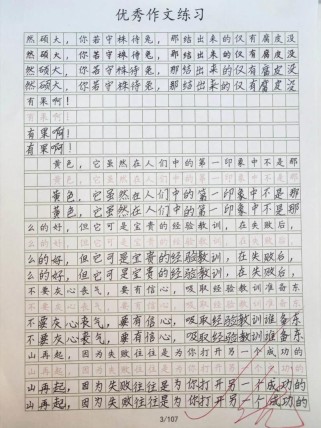 优秀作文练习
然硕大，你若守株待兔，那结出来的仅有腐皮没
然硕大，你若守株待兔，那结出来的仅有腐皮没
然硕大，你若守株待兔，那结出来的仅有腐皮没
有果啊！
有果啊！
有果啊！
黄色，它虽然在人们中的第一印象中不是那
黄色，它虽然在人们中的第一印象中不是那
黄色，它虽然在人们中的第一印象中不是那
么的好，但它可是宝贵的经验教训，在失败后，
么的好，但它可是宝贵的经验教训，在失败后，
么的好，但它可是宝贵的经验教训，在失败后，
不要灰心丧气，要有信心，吸取经验教训准备东
不要灰心丧气，要有信心，吸取经验教训准备东
不要灰心丧气，要有信心，吸取经验教训准备东
山再起，因为失败往往是为你打开另一个成功的
山再起，因为失败往往是为你打开另一个成功的
山再起，因为失败往往是为你打开另一个成功的
3/107